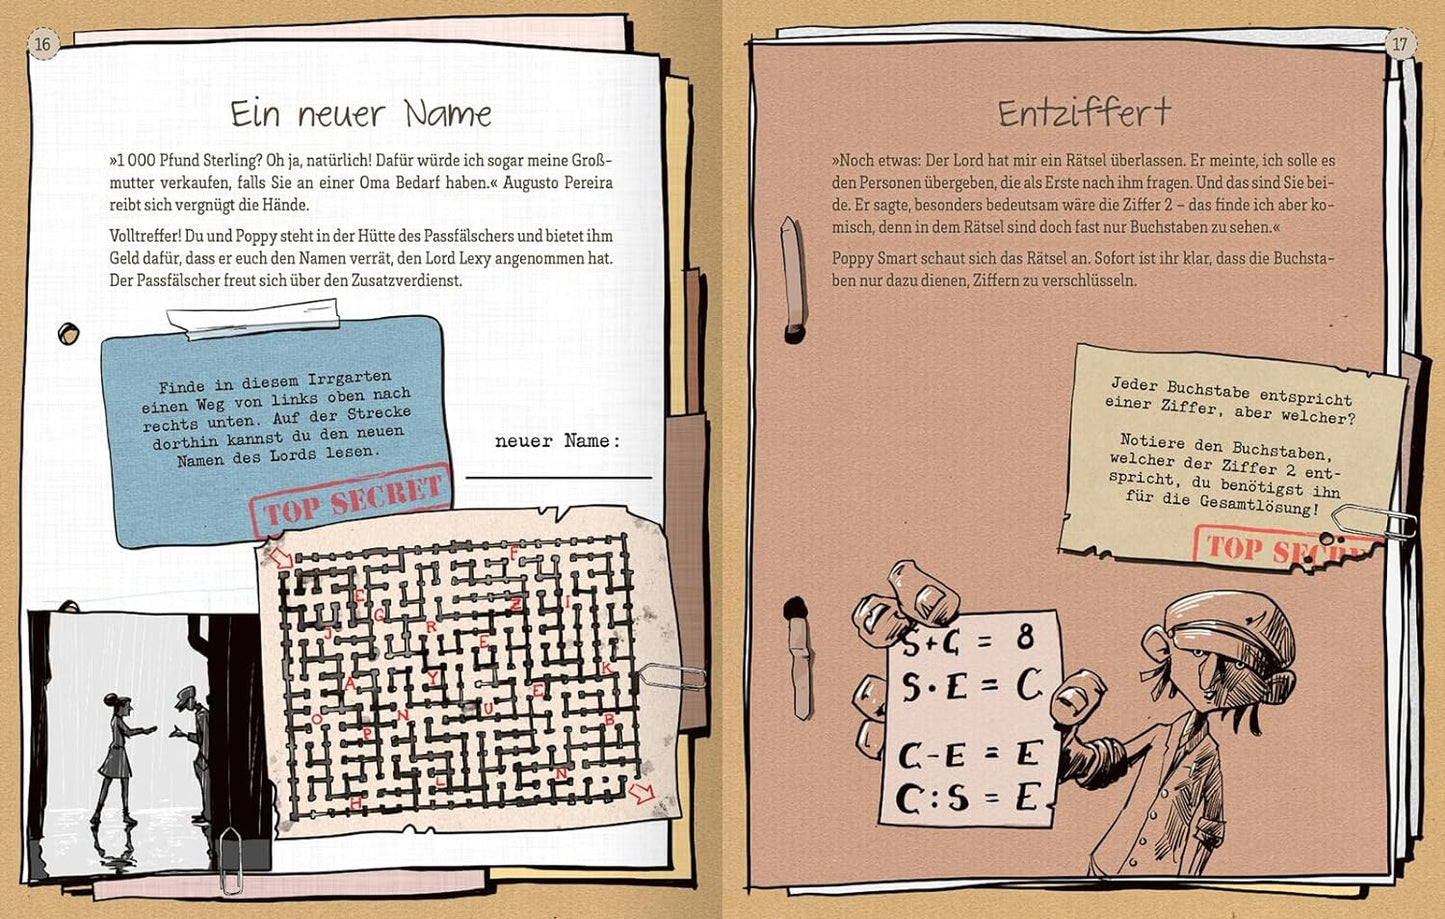 16
Ein neuer Name
»1 000 Pfund Sterling? Oh ja, natürlich! Dafür würde ich sogar meine Groß-
mutter verkaufen, falls Sie an einer Oma Bedarf haben.« Augusto Pereira
reibt sich vergnügt die Hände.
Volltreffer! Du und Poppy steht in der Hütte des Passfälschers und bietet ihm
Geld dafür, dass er euch den Namen verrät, den Lord Lexy angenommen hat.
Der Passfälscher freut sich über den Zusatzverdienst.
Finde in diesem Irrgarten
einen Weg von links oben nach
rechts unten. Auf der Strecke
dorthin kannst du den neuen
Namen des Lords lesen.
TOP SECRET
neuer Name:
F
E
Z
I
G
J
R
E
K
A
Y
E
O
N
U
B
P
L
N
H
17
Entziffert
»Noch etwas: Der Lord hat mir ein Rätsel überlassen. Er meinte, ich solle es
den Personen übergeben, die als Erste nach ihm fragen. Und das sind Sie bei-
de. Er sagte, besonders bedeutsam wäre die Ziffer 2 – das finde ich aber ko-
misch, denn in dem Rätsel sind doch fast nur Buchstaben zu sehen.«
Poppy Smart schaut sich das Rätsel an. Sofort ist ihr klar, dass die Buchsta-
ben nur dazu dienen, Ziffern zu verschlüsseln.
Jeder Buchstabe entspricht
einer Ziffer, aber welcher?
Notiere den Buchstaben,
welcher der Ziffer 2 ent-
spricht, du benötigst ihn
für die Gesamtlösung!
TOP SECRET
S+C = 8
S·E = C
C-E = E
C:S = E